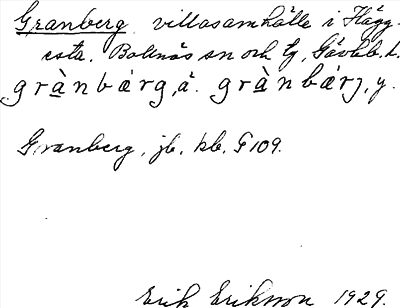 Granberg, villasamhälle i Hägg-
esta, Bollnäs sn och tg, Gävleb. l.
grànbǽrg, å. grànbǽrj, y.
Granberg, jb. kb. G 109.
Erik Erikson 1929.